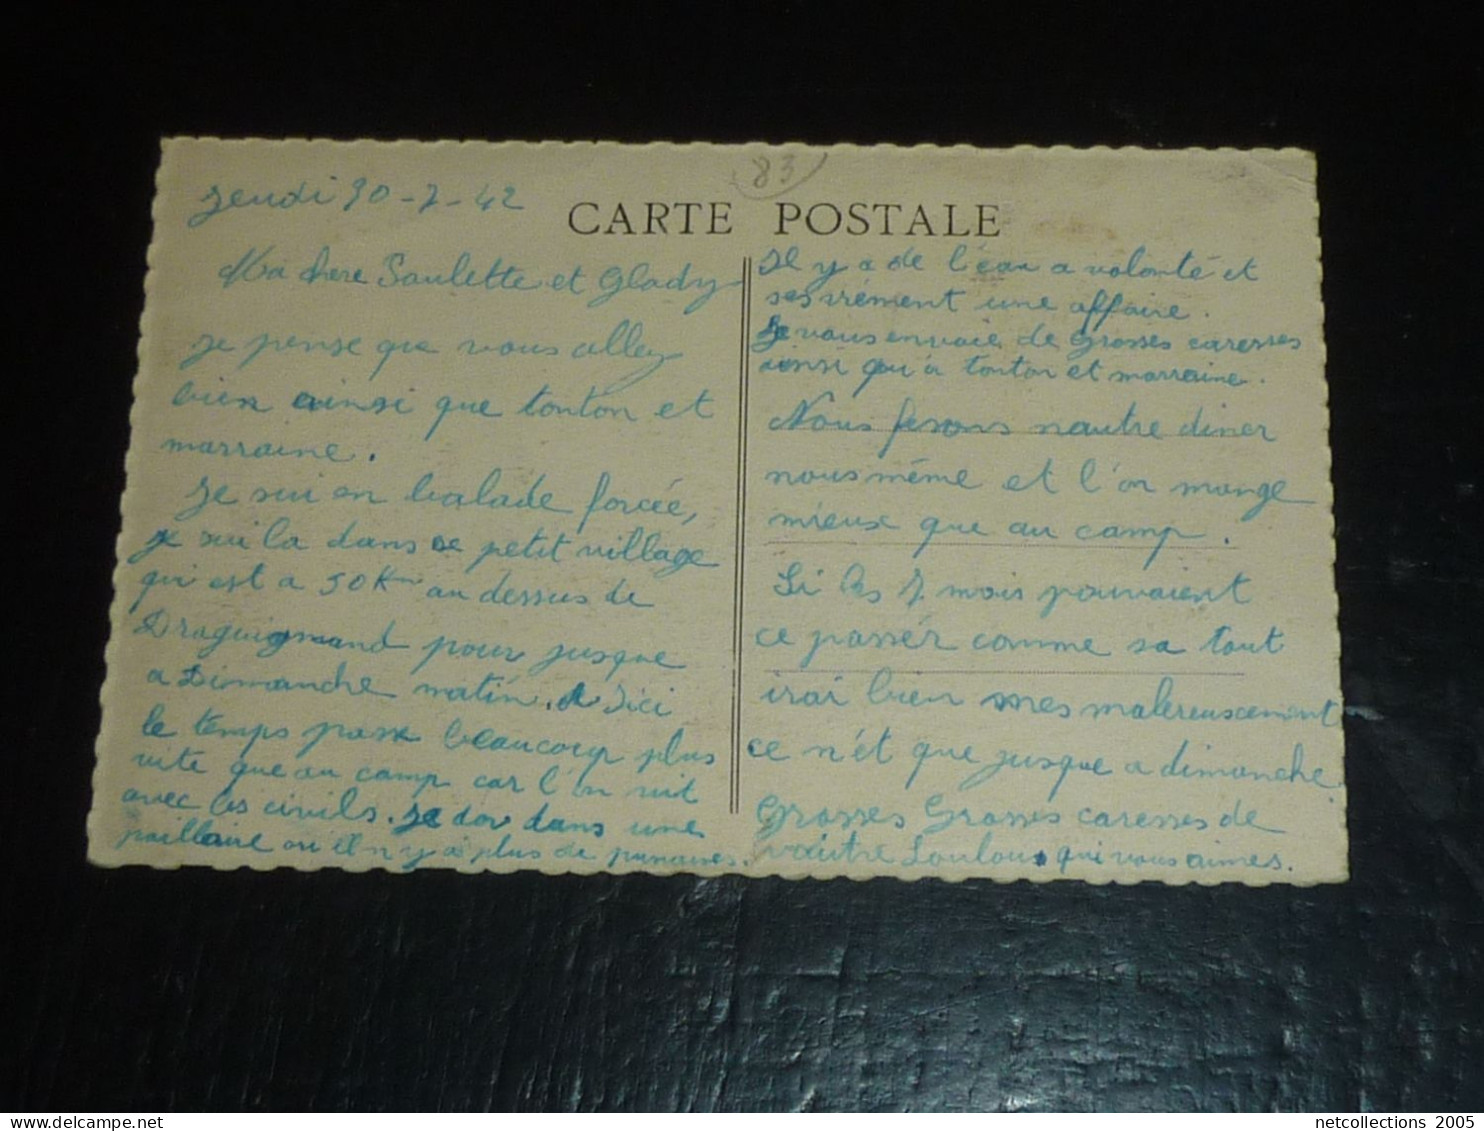 83
CARTE POSTALE
Jeudi 30-7-42
Ma chere Paulette et Glady
je pense que vous allez
bien ainsi que tonton et
marraine.
Je sui en balade forcée,
je sui la dans ce petit village
qui est a 50 Km au dessus de
Draguignand pour jusque
a Dimanche matin. Ici
le temps passe beaucoup plus
vite que au camp car l'on vit
avec les civils. Je dor dans une
paillasse ou il n'y a plus de punaises.
Il y a de l'eau a volonté et
ses vrément une affaire.
Je vous envoie de Grosses caresses
ainsi qu'a tonton et marraine.
Nous fesons nautre diner
nous même et l'on mange
mieux que au camp.
Si les 7 mois pouvaient
ce passér comme sa tout
irai bien mes malereusement
ce n'ét que jusque a dimanche
Grosses Grosses caresses de
vautre Loulou qui vous aimes.
netcollections 2005